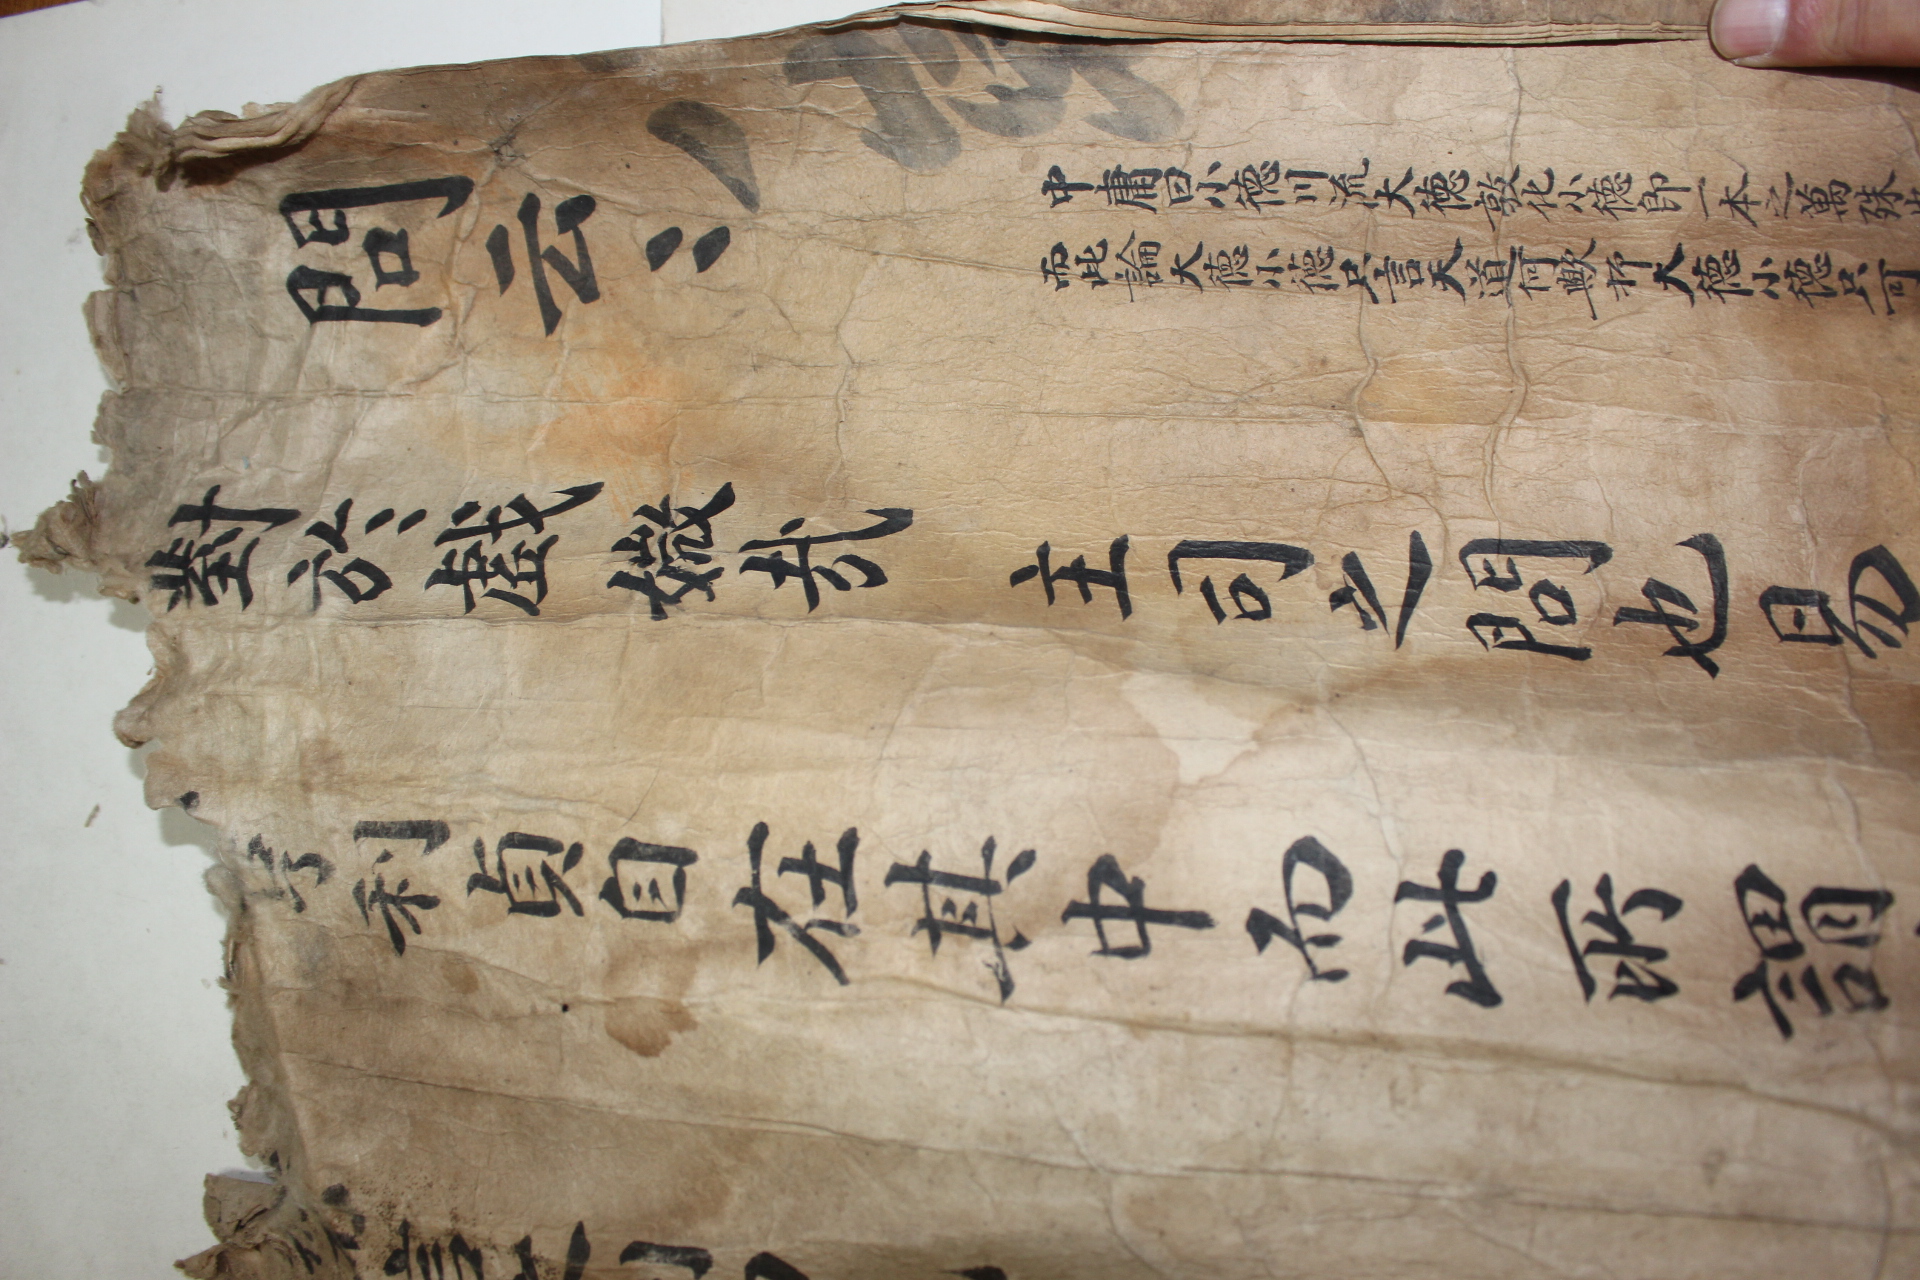 問云〻
中庸曰小德川流大德敦化小德即一本之萬殊
而此論大德小德只言天道何歟抑大德小德只可
對於戱微哉主司之問也易
亨利貞自在其中而此所謂